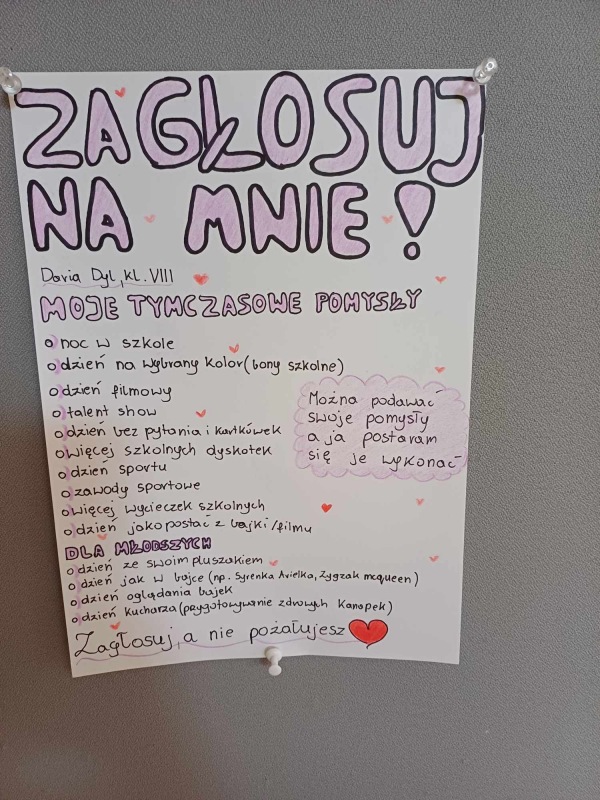 ZAGŁOSUJ
NA MNIE!
Daria Dyl, kl. VIII
MOJE TYMCZASOWE POMYSŁY
o noc w szkole
o dzień na wybrany kolor (bony szkolne)
o dzień filmowy
o talent show
o dzień bez pytania i kartkówek
o więcej szkolnych dyskotek
o dzień sportu
o zawody sportowe
o więcej wycieczek szkolnych
o dzień jako postać z bajki/filmu
Można podawać
swoje pomysły
a ja postaram
się je wykonać
DLA MŁODSZYCH
o dzień ze swoim pluszakiem
o dzień jak w bajce (np. Syrenka Arielka, Zygzak mcqueen)
o dzień oglądania bajek
o dzień Kucharza (przygotowywanie zdrowych Kanapek)
Zagłosuj, a nie pożałujesz